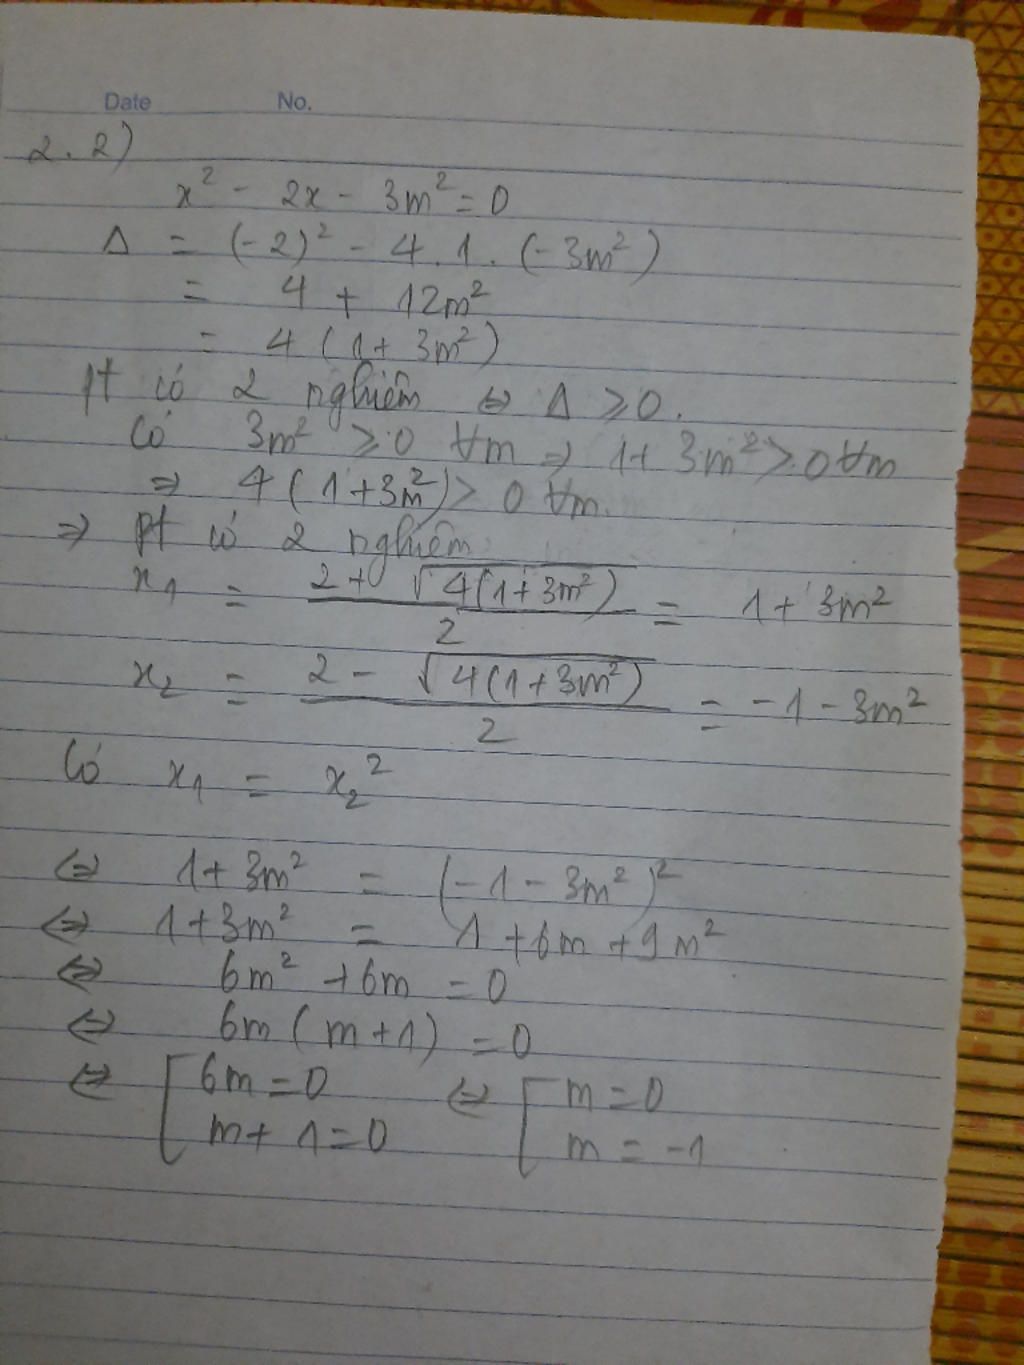 Date No.
2.2)
x² - 2x - 3m² = 0
Δ = (-2)² - 4.1.(-3m²)
= 4 + 12m²
= 4(1+3m²)
pt có 2 nghiệm ⇔ Δ ≥ 0.
Có 3m² ≥ 0 ∀m ⇒ 1+3m² > 0 ∀m
⇒ 4(1+3m²) > 0 ∀m.
⇒ pt có 2 nghiệm
x₁ = (2+√(4(1+3m²)))/2 = 1+3m²
x₂ = (2-√(4(1+3m²)))/2 = -1-3m²
Có x₁ = x₂²
⇔ 1+3m² = (-1-3m²)²
⇔ 1+3m² = 1+6m+9m²
⇔ 6m² + 6m = 0
⇔ 6m(m+1) = 0
⇔ [6m=0 ⇔ [m=0
m+1=0 m=-1